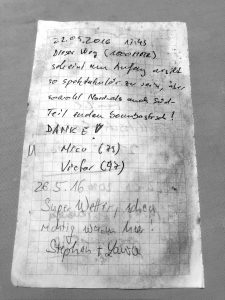 22.05.2016 17:45
Dieser Weg
scheint am Anfang nicht
so spektakulär zu sein, aber
sowohl Nord- als auch Süd-
Teil enden bombastisch!
DANKE!
Micu (79)
Victor (97)
26.5.16
Super Wetter, schon
richtig warm hier.
Stephan + Louisa